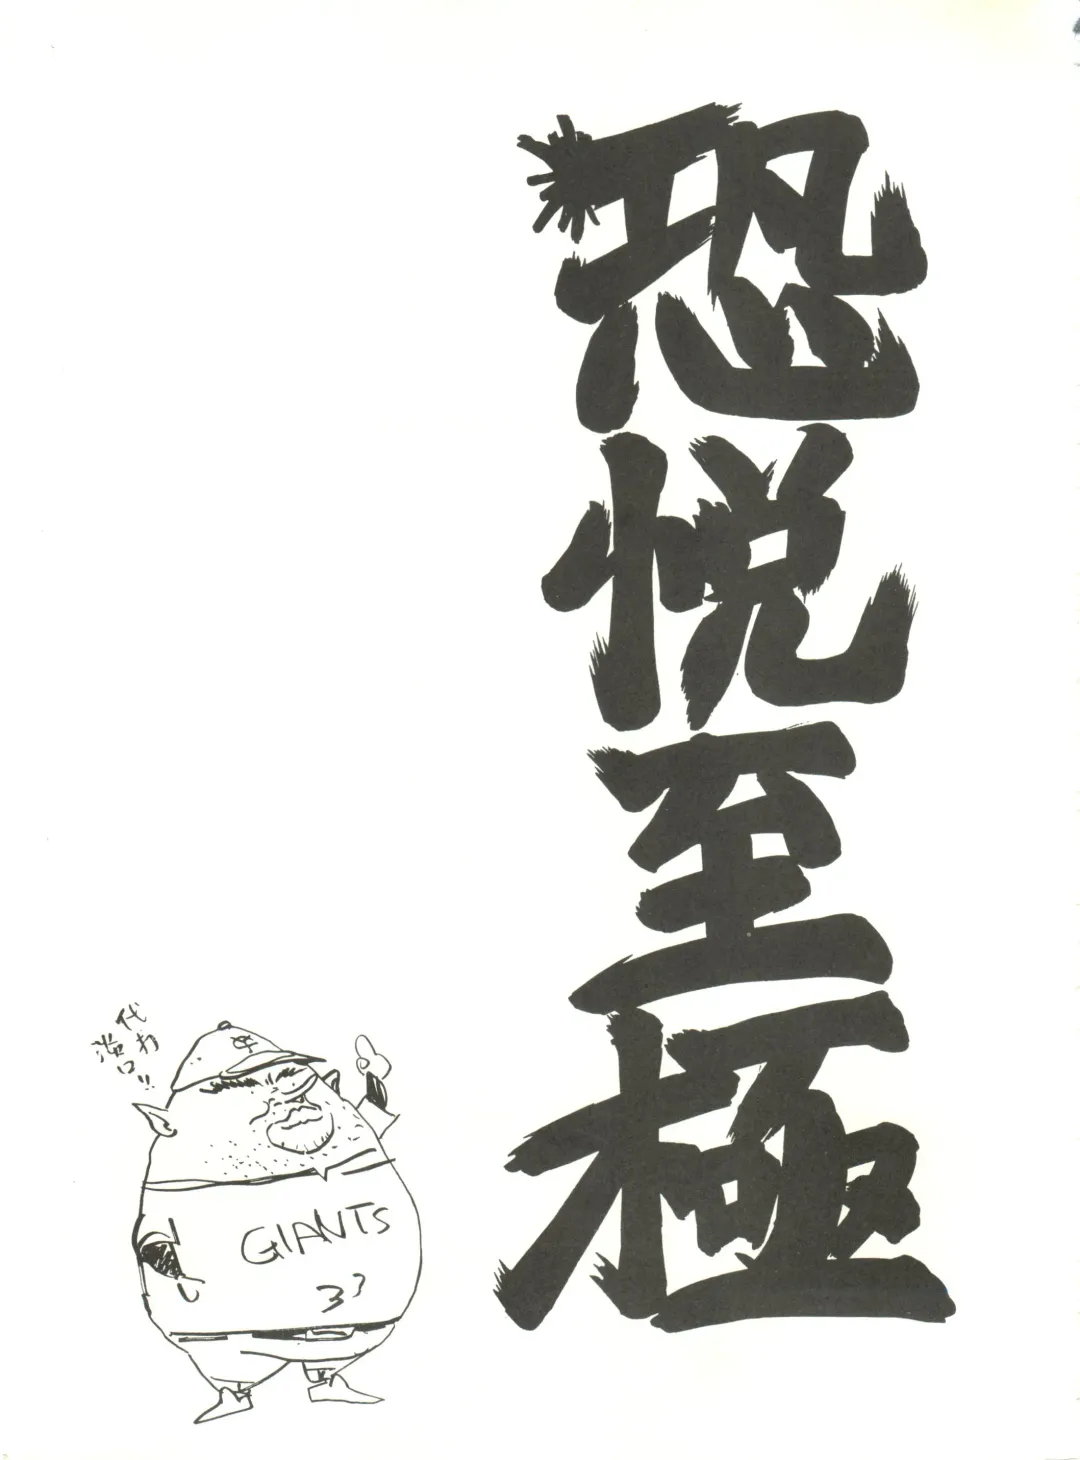 恐悦至極
代打
川口!!
GIANTS
33